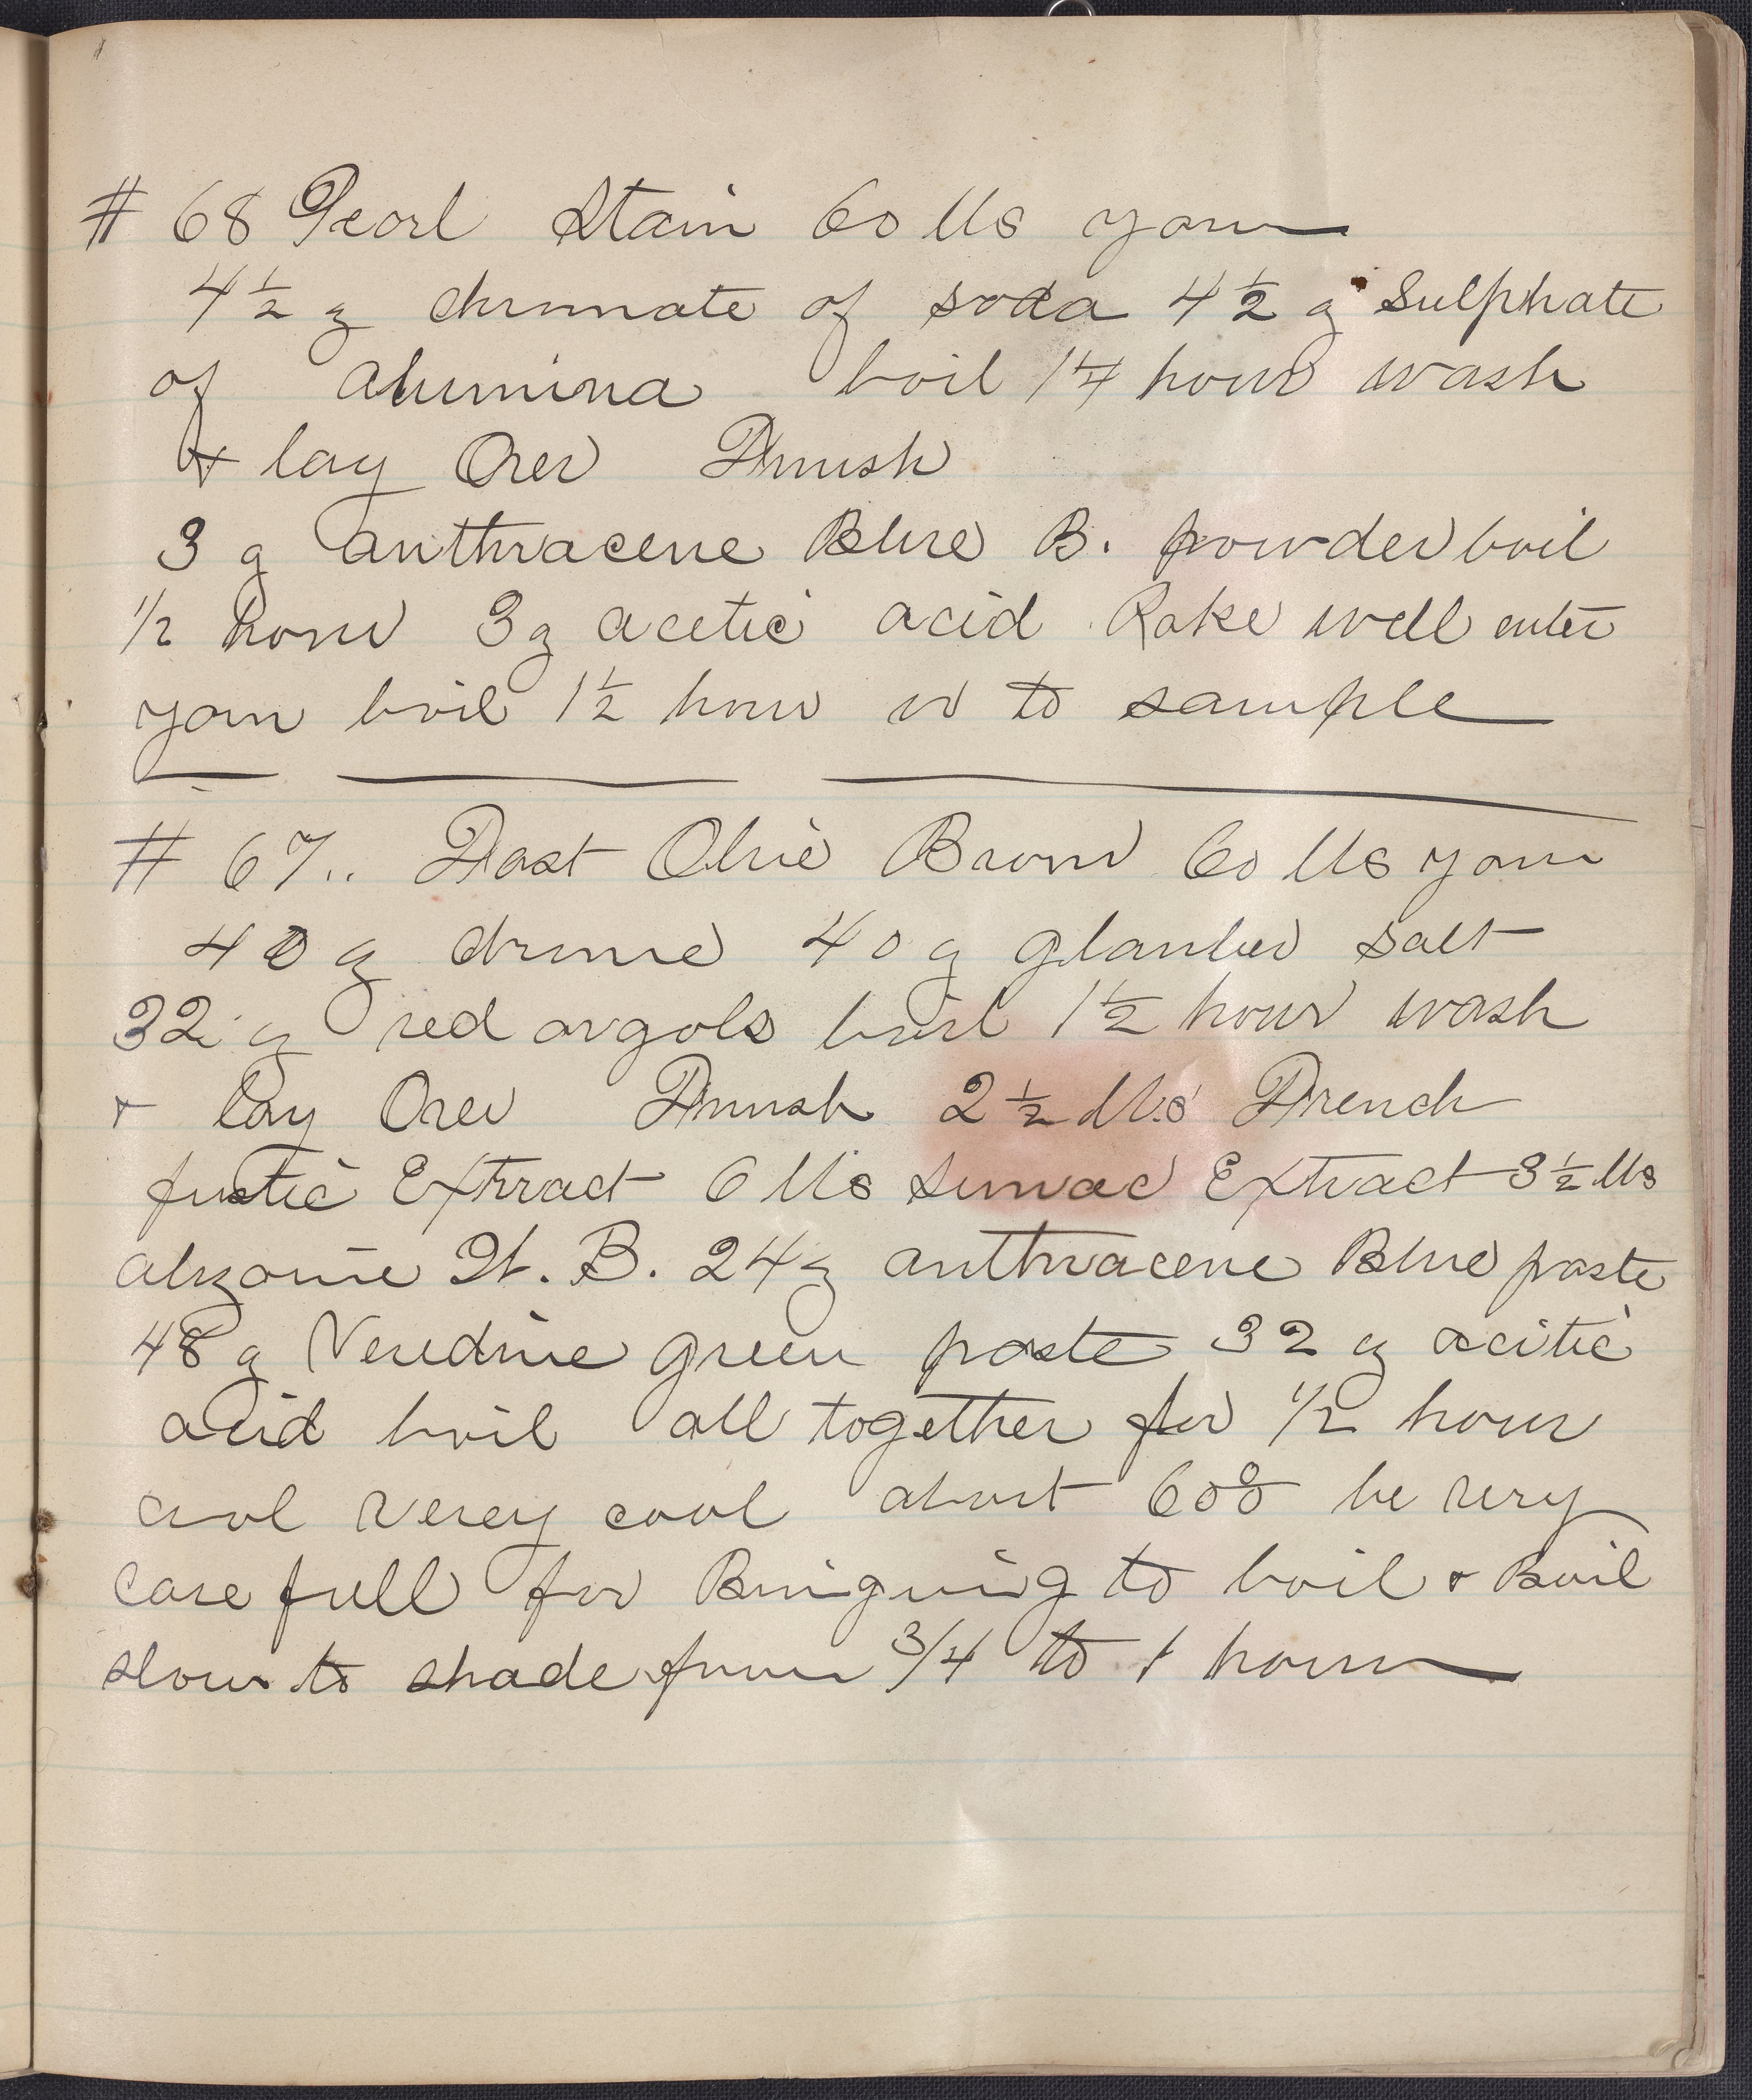 # 68 Pearl Stain 60 lbs yarn
4 1/2 g chromate of soda 4 1/2 g Sulphate
of alumina boil 1 1/4 hour wash
+ lay Over Finish
3 g anthracene Blue B. powder boil
1/2 hour 3 g acetic acid Rake well enter
yarn boil 1 1/2 hour or to sample
# 67.. Fast Olive Brown 60 lbs yarn
40 g chrome 40 g glauber salt
32 g red argols boil 1 1/2 hour wash
+ lay Over Finish 2 1/2 lbs French
fustic Extract 6 lbs sumac Extract 3 1/2 lbs
alizarine W. B. 24 g anthracene Blue paste
48 g Veredine green paste 32 g acitic
acid boil all together for 1/2 hour
cool verey cool about 600 be very
care full for Bringing to boil + Boil
slow to shade from 3/4 to 1 hour